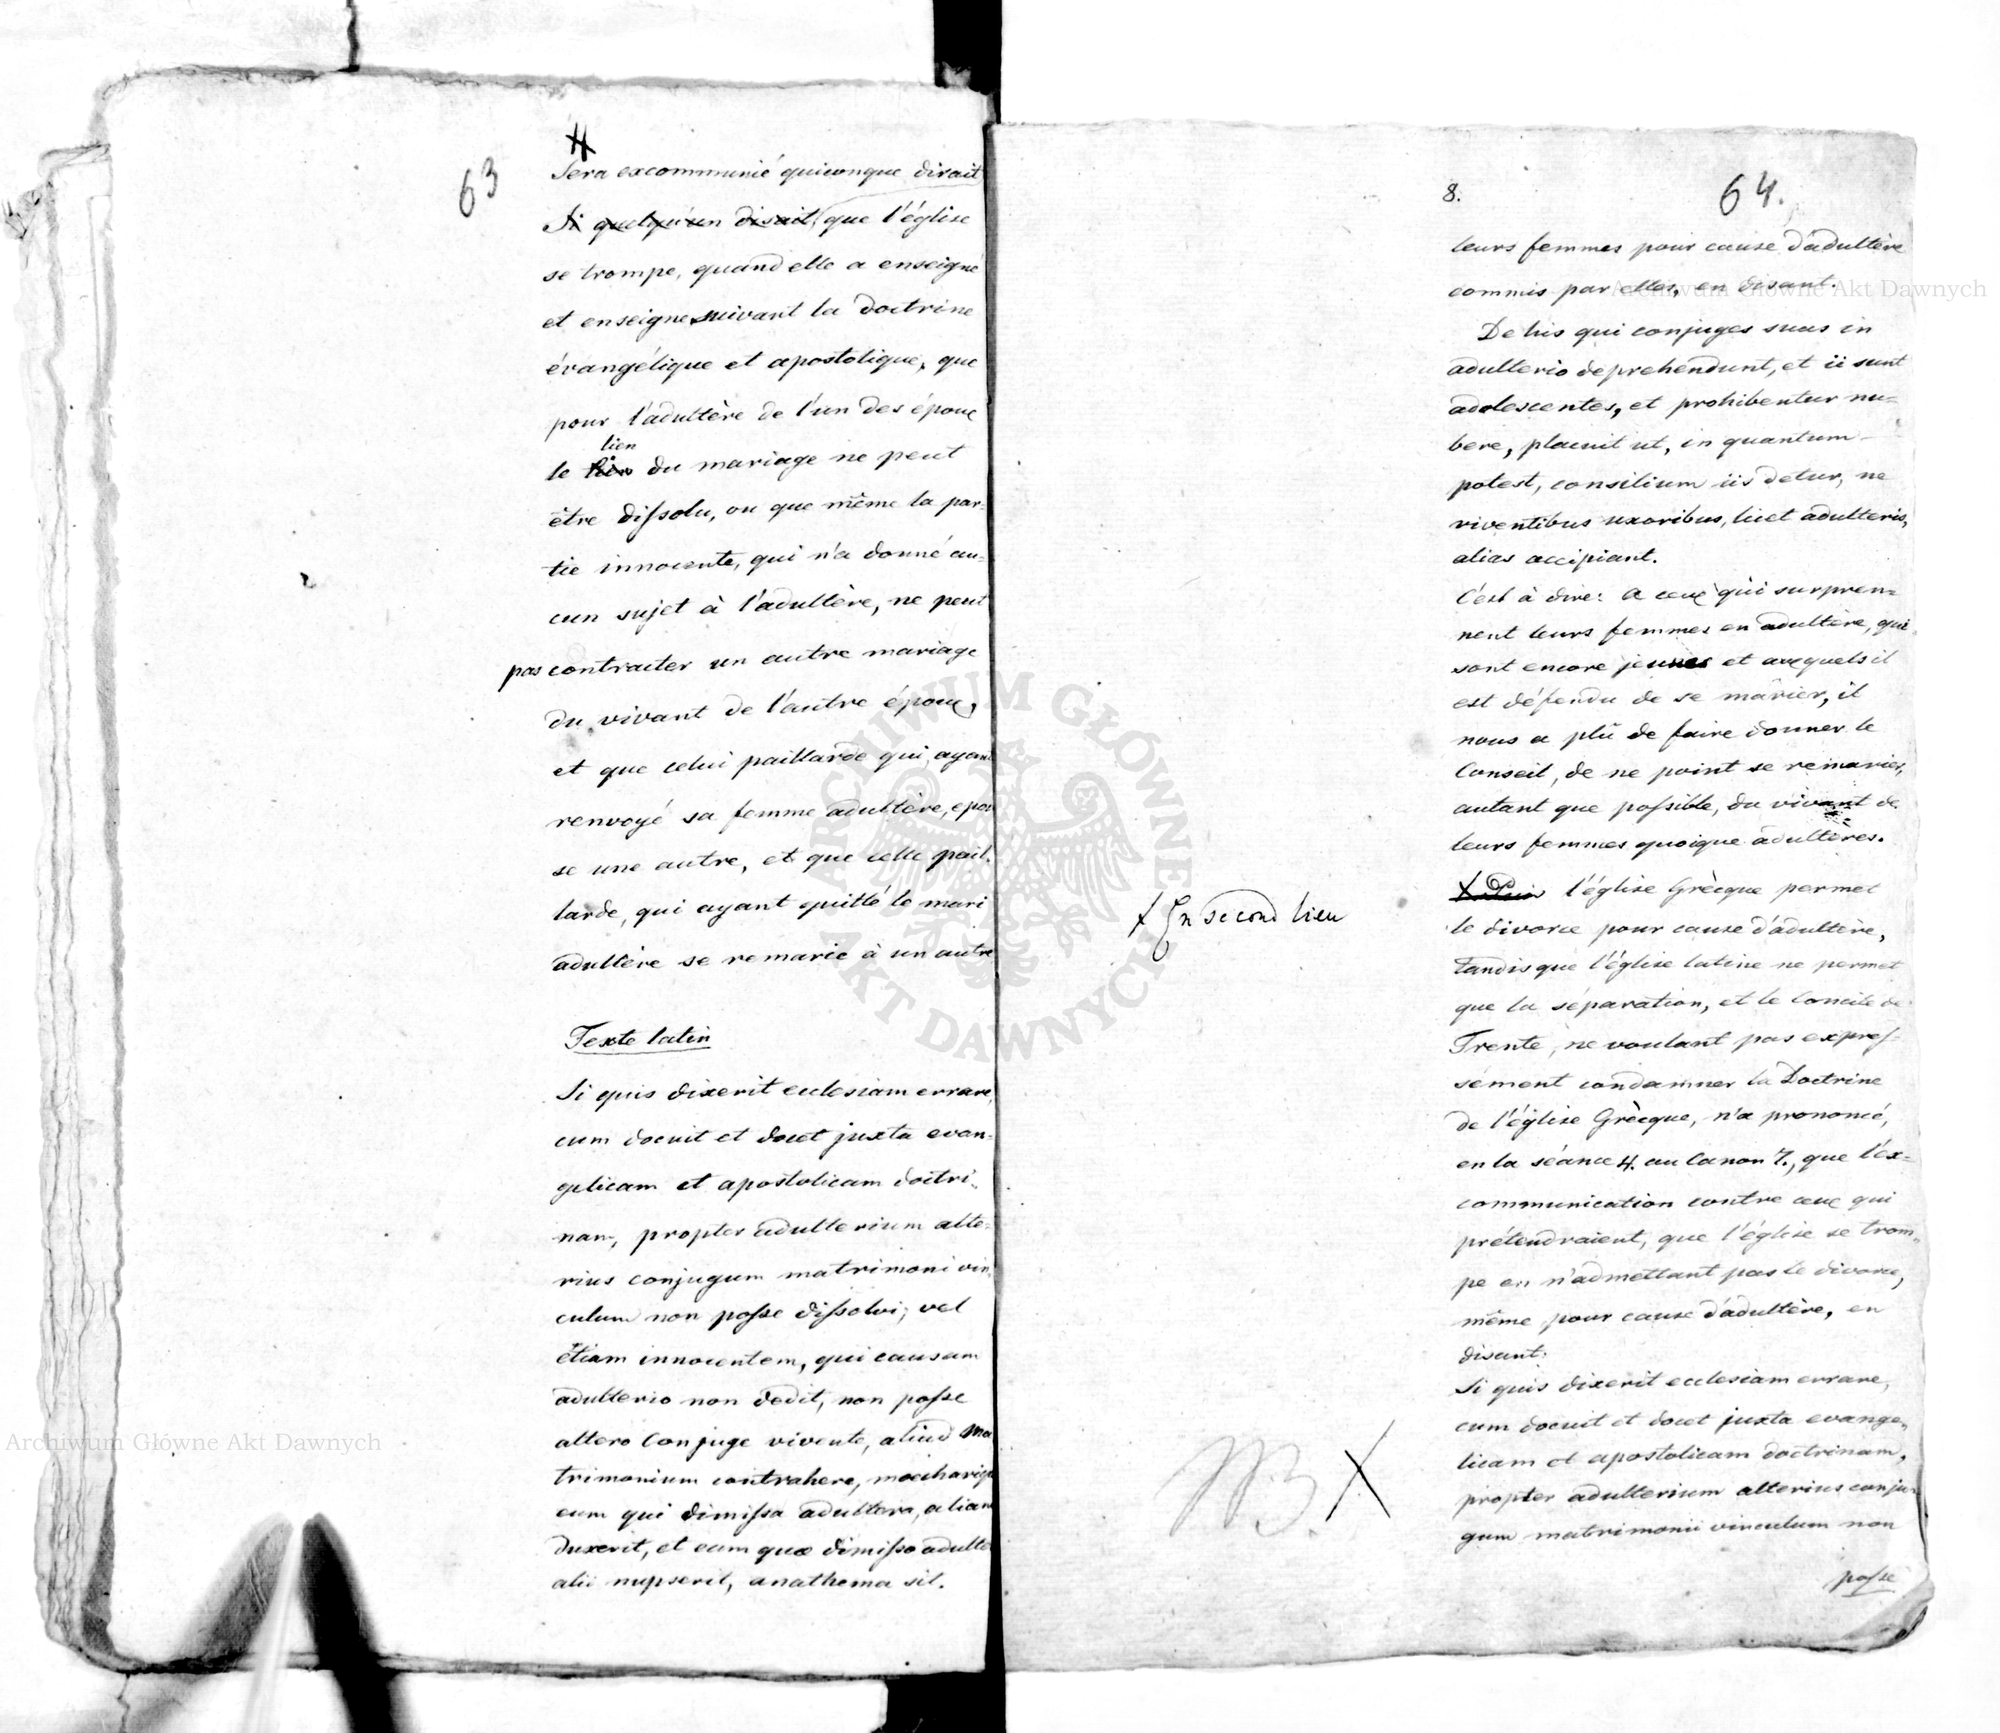 63
#
Sera excommunié quiconque dirait
Si quelqu'un disait, que l'église
se trompe, quand elle a enseigné
et enseigne suivant la doctrine
évangélique et apostolique, que
pour l'adultère de l'un des époux
lien
le lien du mariage ne peut
être dissolu, ou que même la par-
tie innocente, qui n'a donné au-
cun sujet à l'adultère, ne peut
pas contracter un autre mariage
du vivant de l'autre époux,
et que celui paillarde qui, ayant
renvoyé sa femme adultère, epou
se une autre, et que celle pail-
larde, qui ayant quitté le mari
adultère se remarie à un autre
Texte latin
Si quis dixerit ecclesiam errare,
cum docuit et docet juxta evan-
gelicam et apostolicam doctri-
nam, propter adulterium alte-
rius conjugum matrimoni vin-
culum non posse dissolvi; vel
etiam innocentem, qui causam
adulterio non dedit, non posse
altero Conjuge vivente, aliud ma
trimonium contrahere, moecharique
eum qui dimissa adultera, aliam
duxerit, et eam quae dimisso adulte
alii nupserit, anathema sit.
8.
64.
leurs femmes pour cause d'adultère
commis par elles, en disant.
De his qui conjuges suas in
adulterio deprehendunt, et ii sunt
adolescentes, et prohibentur nu-
bere, placuit ut, in quantum
potest, consilium iis detur, ne
viventibus uxoribus, licet adulteris,
alias accipiant.
C'est à dire: A ceux qui surpren-
nent leurs femmes en adultère, qui
sont encore jeunes et auxquels il
est défendu de se marier, il
nous a plû de faire donner le
Conseil, de ne point se remarier,
autant que possible, du vivant de
leurs femmes quoique adultères.
+ l'église Grècque permet
+ En second lieu
le divorce pour cause d'adultère,
Tandis que l'église latine ne permet
que la séparation, et le Concile de
Trente, ne voulant pas expres-
sément condamner la Doctrine
de l'église Grècque, n'a prononcé,
en la séance 4. au Canon 7., que l'ex-
communication contre ceux qui
prétendraient, que l'église se trom-
pe en n'admettant pas le divorce,
même pour cause d'adultère, en
disant:
Si quis dixerit ecclesiam errare,
cum docuit et docet juxta evange-
licam et apostolicam doctrinam,
propter adulterium alterius conju-
gum matrimonii vinculum non
posse
NB. X
Archiwum Główne Akt Dawnych
Archiwum Główne Akt Dawnych
ARCHIWUM GŁÓWNE AKT DAWNYCH